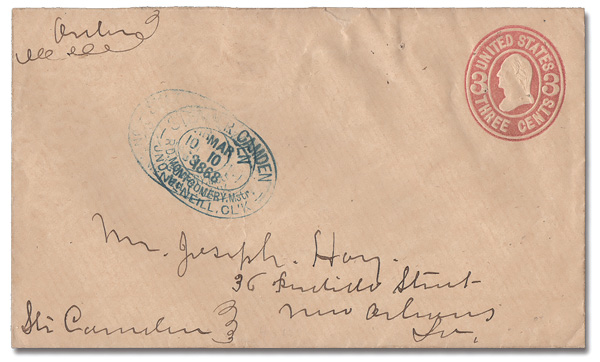 UNITED STATES
3 3
THREE CENTS
STR CAMDEN
MAR
10 10
1868
R.D. MONTGOMERY, Mstr.
JNO. McNEILL, CL'K
Mr. Joseph. Hoy.
36 Street
New Orleans
La.
Str Camden